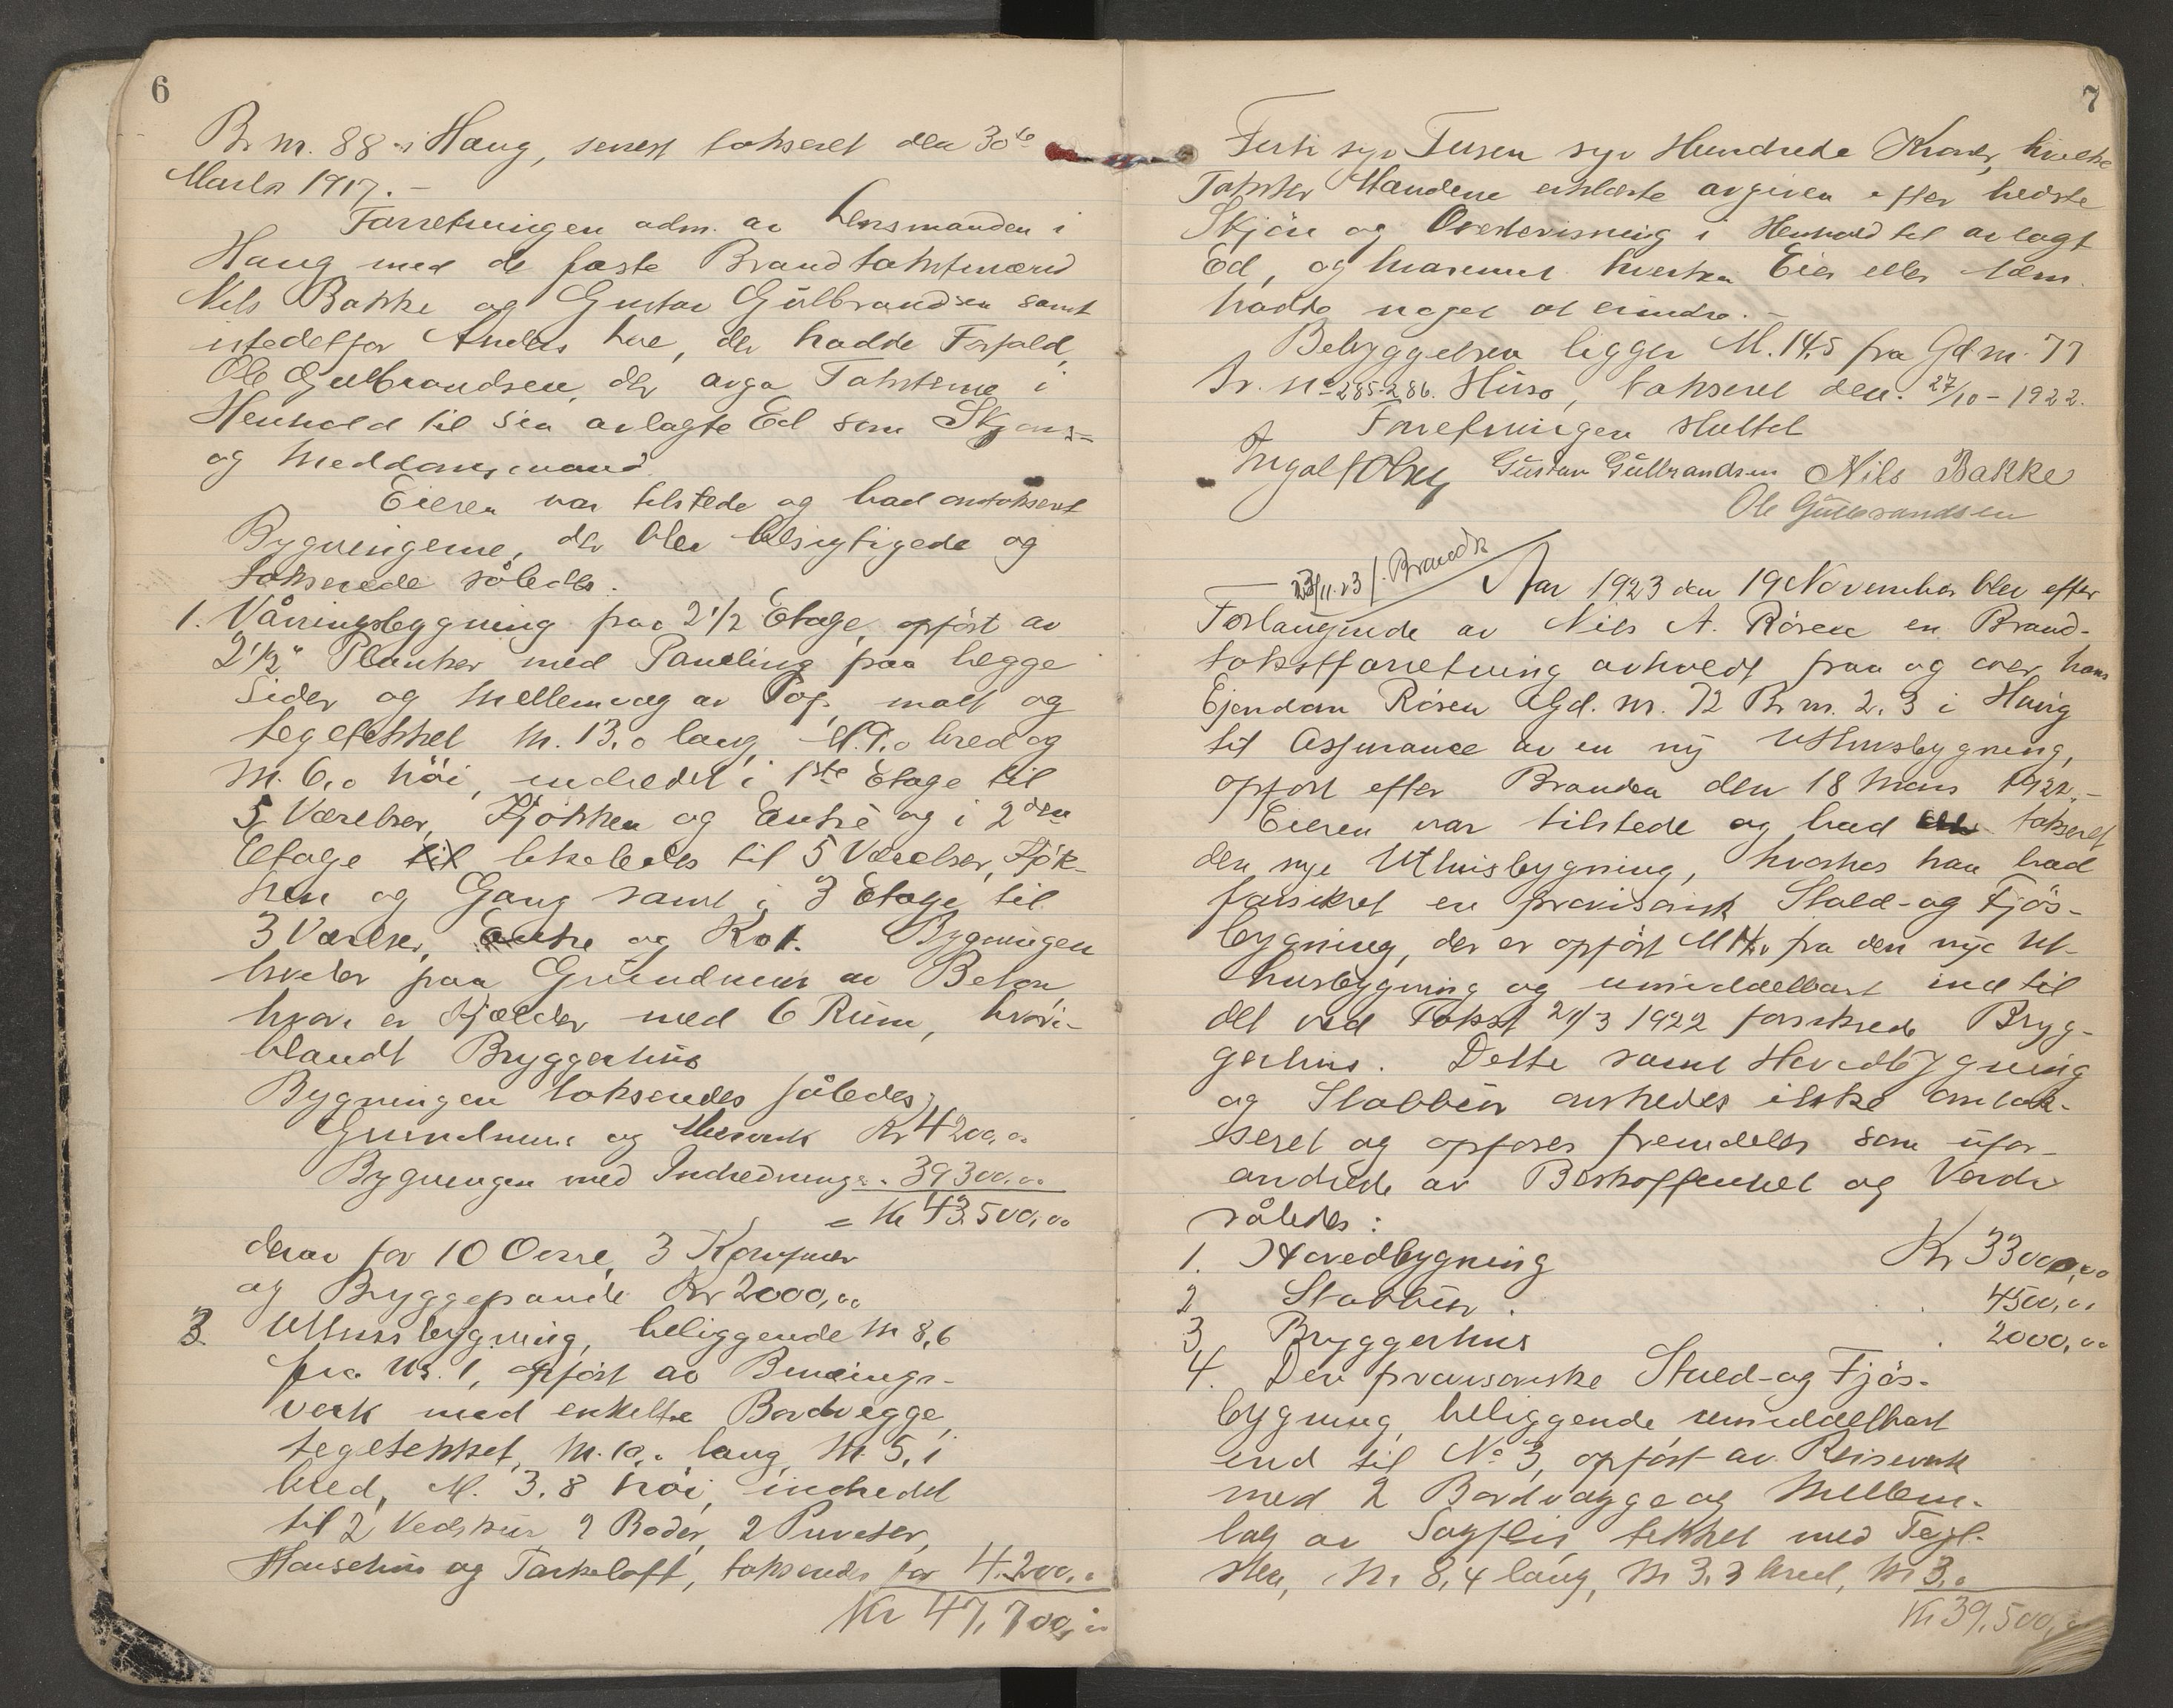 6
Br. nr. 88 i Haug, senest takseret den 30te
Marts 1917. –
Forretningen adm. av Lensmanden i
Haug med de faste Brandtakstmænd
Nils Bakke og Gustav Gülbrandsen samt
istedetfor Anders, der hadde Forfald,
Ole Gulbrandsen, der avga Taksterne i
Henhold til sin avlagte Ed som Skjøns-
og Meddomsmand.
Eieren var tilstede og bad omtakseret
Bygningerne, der blev besigtigede og
takserede således:
1. Våningsbygning paa 2 1/2 Etage, opført av
2 1/2" Planker med Paneling paa begge
Sider og Mellemlag av Pap, malt og
tegltækket M. 13,0 lang, M. 9,0 bred og
M. 6,0 höi, indredet i 1ste Etage til
5 Værelser, Kjökken og Entré og i 2den
Etage til likeledes til 5 Værelser, Kjök-
ken og Gang samt i 3 Etage til
3 Værelser, Entre og Kot. Bygningen
hviler paa Grundmur av Beton
hvori er Kjælder med 6 Rum, hvori-
blandt Bryggerhus
Bygningen takseredes således:
Grundmur og Murverk Kr 4200,00
Bygningen med Indredning . 39300,00
= Kr 43.500,00
derav for 10 Ovne, 3 Komfurer
og Bryggepande Kr 2000,00
3. Uthusbygning, beliggende M 8,6
fra Nr. 1, opført av Bindings-
verk med enkelte Bordvegge,
tegltekket, M. 10,0 lang, M. 5,1
bred, M. 3.8 höi, indredet
til 2 Vedskur 2 Boder, 2 Priveter,
Hønsehus og Tørkeloft, takseredes for 4.200,00
Kr 47,700,00
7
Førti syv Tusen syv Hundrede Kroner, hvilke
Takster Mændene erklærte avgiven efter bedste
Skjön og Overbevisning i Henhold til avlagt
Ed, og hvorimot hverken Eier eller Lem.
hadde noget at erindre. –
Bebyggelsen ligger M. 14,5 fra Gd. nr. 77
Br. No 285-286. Hüso, takseret den 27/10 – 1922.
Forretningen sluttet
Gustav Gülbrandsen Nils Bakke
Ole Gülbrandsen
23/11.23 /. Brandk
Aar 1923 den 19 November blev efter
Forlangende av Nils A. Rösen en Brand-
takstforretning avholdt paa og over hans
Ejendom Rösen Gd. nr. 72 Br. nr. 2, 3 i Haug
til Assurance av en ny Uthusbygning,
opført efter Branden den 18 Mars 1922. –
Eieren var tilstede og bad takseret
den nye Uthusbygning, hvorhos han bad
forsikret en provisorisk Stald- og Fjös-
bygning, der er opfört M fra den nye Ut-
husbygning og umiddelbart ind til
det ved Takst 21/3 1922 forsikrede Bryg-
gerhus. Dette samt Hovedbygning
og Stabbür ønskedes ikke omtak-
seret og opføres fremdeles som ufor-
andrede av Beskaffenhet og Verdi
således:
1. Hovedbygning Kr 33000,00
2 Stabbür . 4500,00
3 Bryggerhus . 2000,00
4. Den provisoriske Stald- og Fjös-
bygning, beliggende umiddelbart
ind til No 3, opfört av Reisverk
med 2 Bordvægge og Mellem-
lag av Sagflis, tekket med Tegl-
sten, M. 8,4 lang, M 3,3 bred, M 3,0
Kr 39,500,00